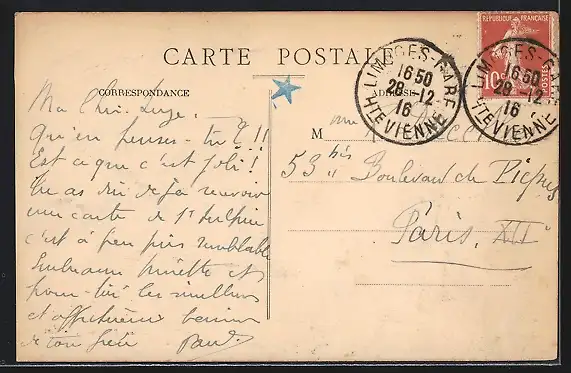 CARTE POSTALE
CORRESPONDANCE
ADRESSE
RÉPUBLIQUE FRANÇAISE
10
LIMOGES-GARE
16 50
28 -12
16
HTE VIENNE
LIMOGES-GARE
16 50
28 -12
16
HTE VIENNE
Ma Chère
Qu'en penses-tu ? !!
Est ce que c'est joli !
Tu as dû déjà recevoir
une carte de St Sulpice
c'est à peu près semblable
et
pour toi les meilleurs
et affectueux baisers
de ton frère Paul
M me
53 bis Boulevard de Picpus
Paris. XII e